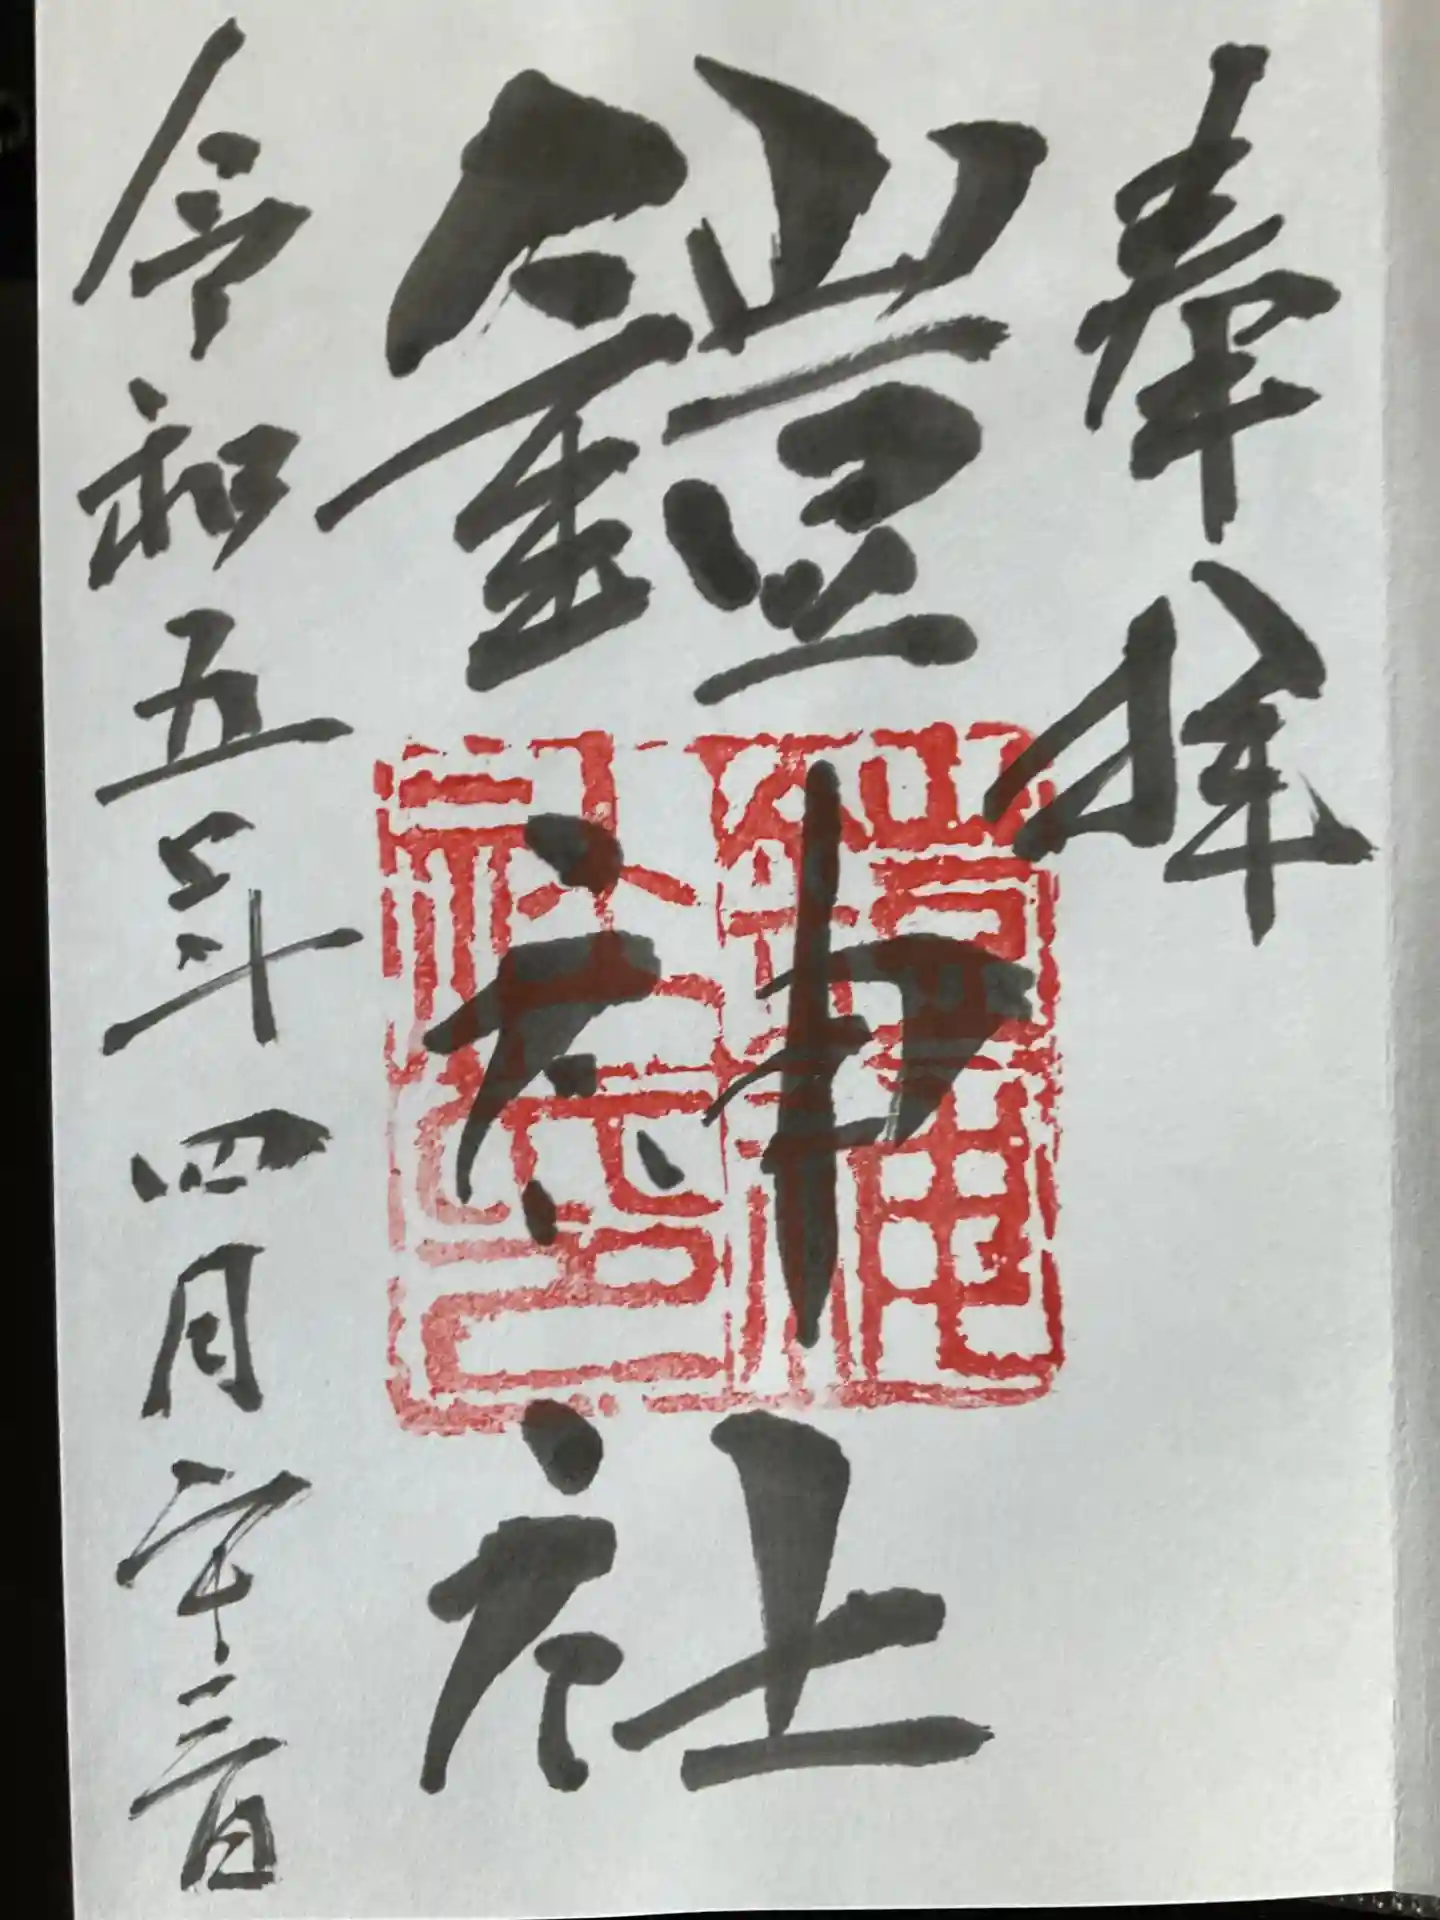 奉拝
鎧神社
鎧神社之印
令和五年四月二十三日